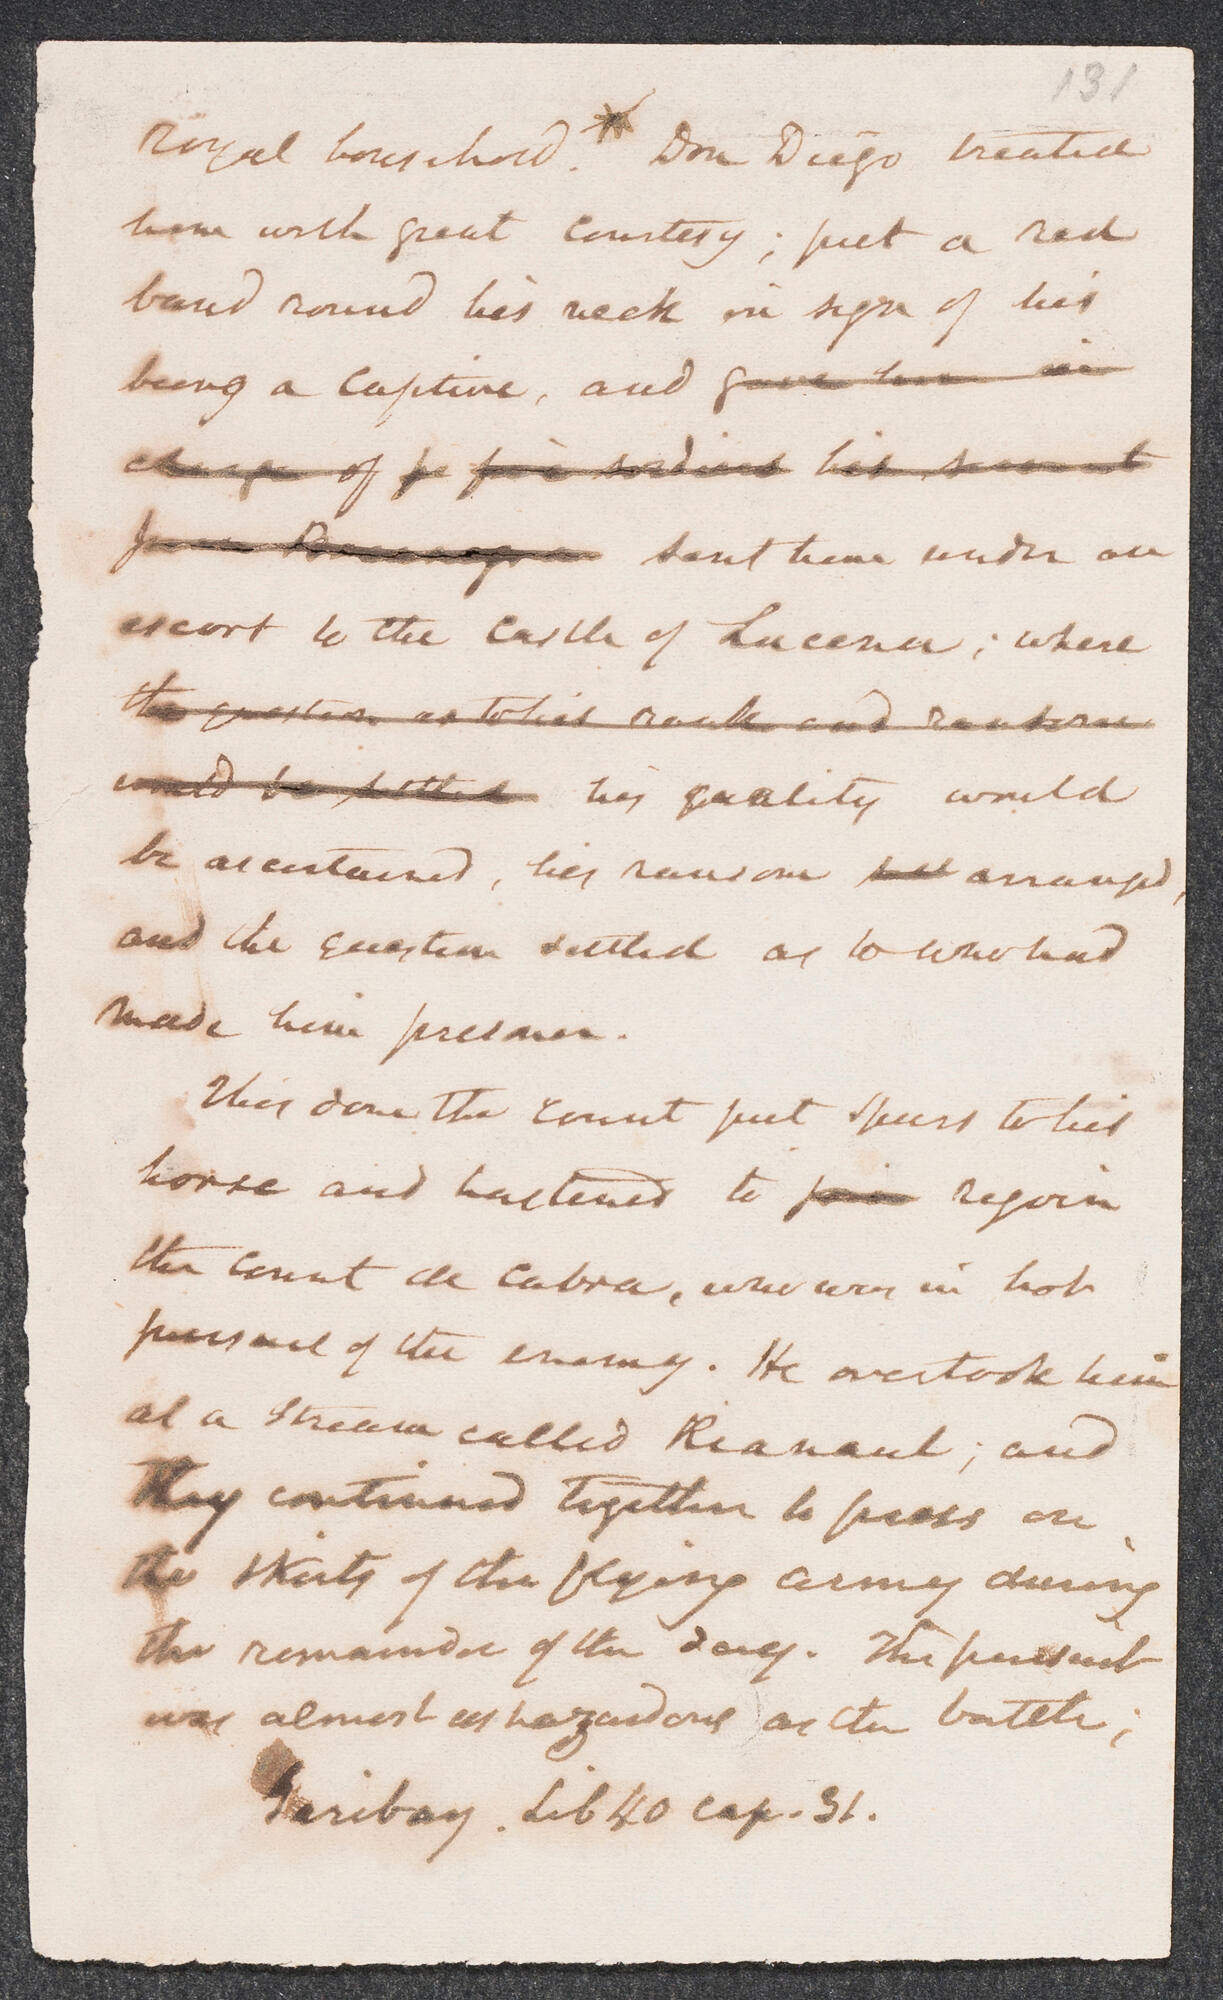 131
royal household.* Don Diego treated
him with great courtesy; put a red
band round his neck in sign of his
being a captive, and gave him in
charge of five soldiers his servant
sent him under an
escort to the castle of Lucena; where
the question as to his rank and ransom
would be settled his quality would
be ascertained, his ransom arranged,
and the question settled as to who had
made him prisoner.
This done the count put spurs to his
horse and hastened to join rejoin
the count de Cabra, who was in hot
pursuit of the enemy. He overtook him
at a stream called Rianaul; and
they continued together to press on
the skirts of the flying army during
the remainder of the day. The pursuit
was almost as hazardous as the battle;
Garibay. Lib 40 cap. 31.